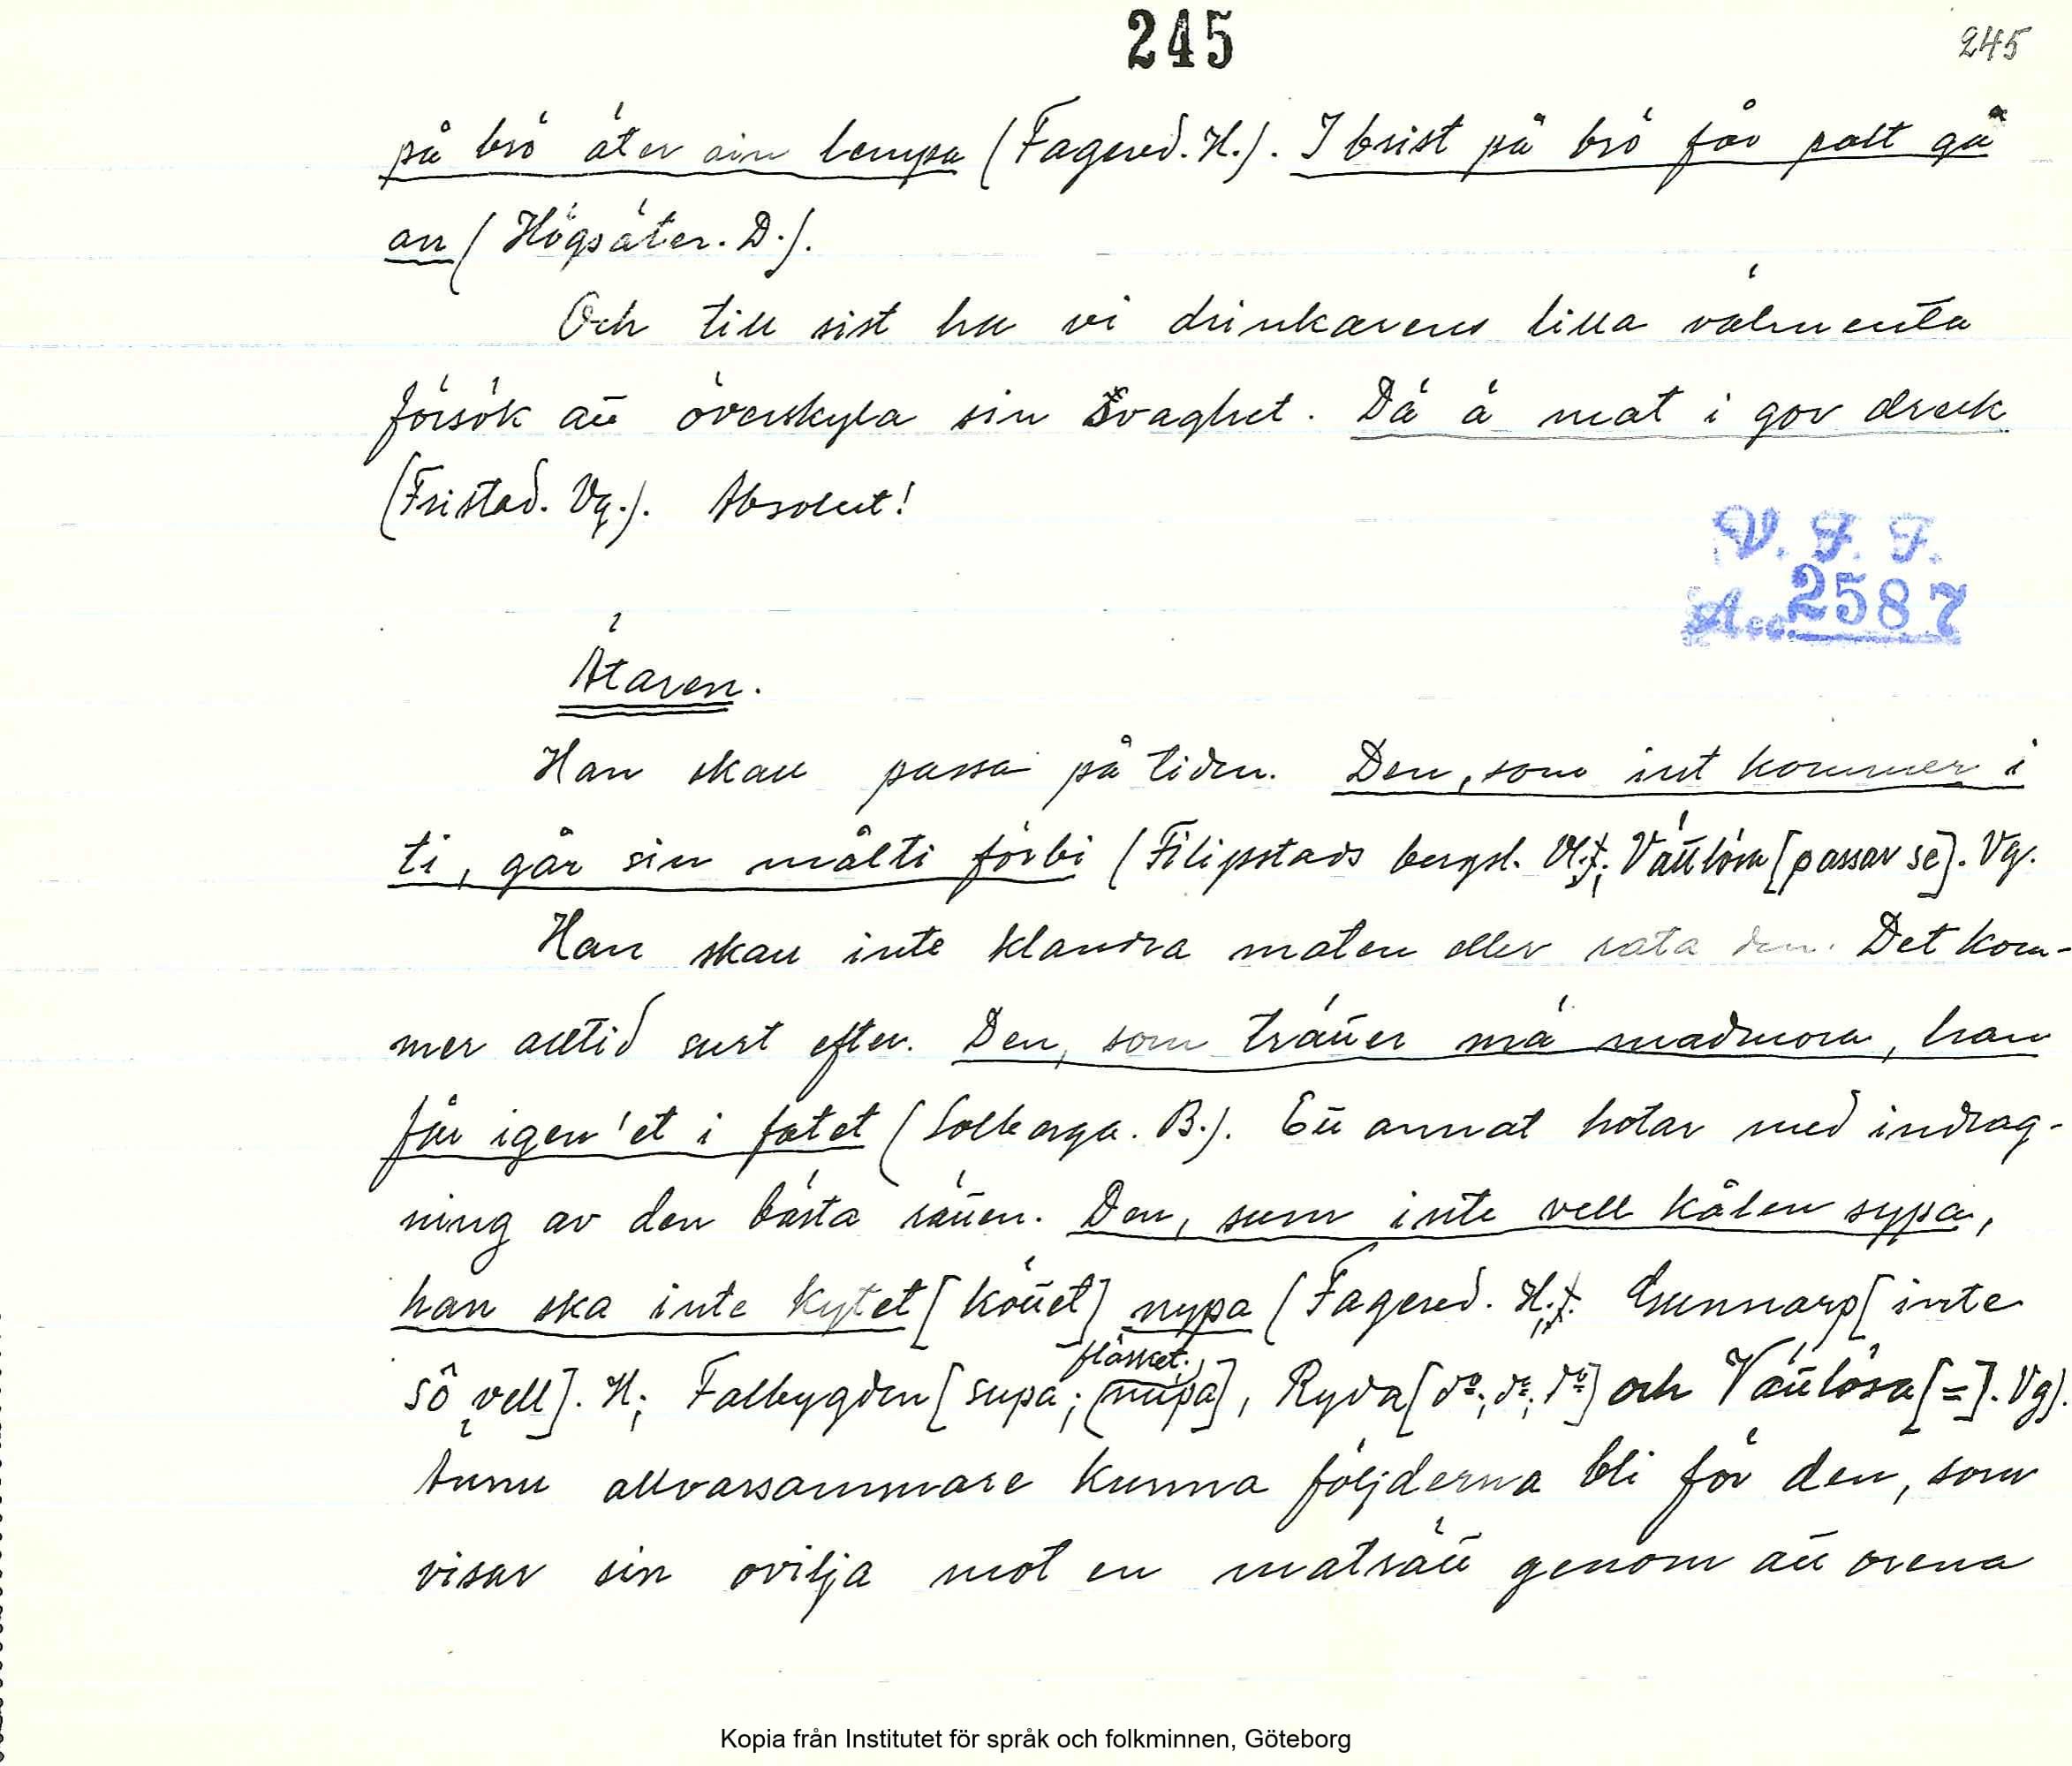 245
245
på brö äter ain lempa (Fagered. H.). I brist på brö får palt gå
an (Högsäter. D.).
Och till sist ha vi drinkarens lilla välmenta
försök att överskyla sin svaghet. Dä ä mat i gor dreck
(Fristad. Vg.). Absolut!
V. F. F.
Acc. 2587
Ätaren.
Han skall passa på tiden. Den, som int kommer i
ti, går sin målti förbi (Filipstads bergsl. Vl.; Vättlösa [passar se]. Vg.
Han skall inte klandra maten eller rata den. Det kom-
mer alltid surt efter. Den, som trätter mä madmora, han
får igen'et i fatet (Solberga. B.). Ett annat hotar med indrag-
ning av den bästa rätten. Den, sum inte vell kålen sypa,
han ska inte kytet [köttet] nypa (Fagered. H.; Gunnarp [inte
fläsket
sô vell]. H; Falbygden [supa; (nupa], Ryda [do; do; do] och Vättlösa [=]. Vg).
Ännu allvarsammare kunna följderna bli för den, som
visar sin ovilja mot en maträtt genom att orena
Kopia från Institutet för språk och folkminnen, Göteborg